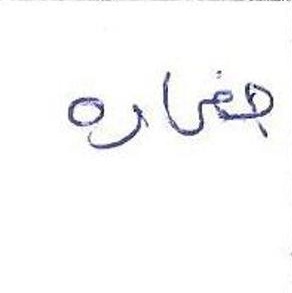 جفاره